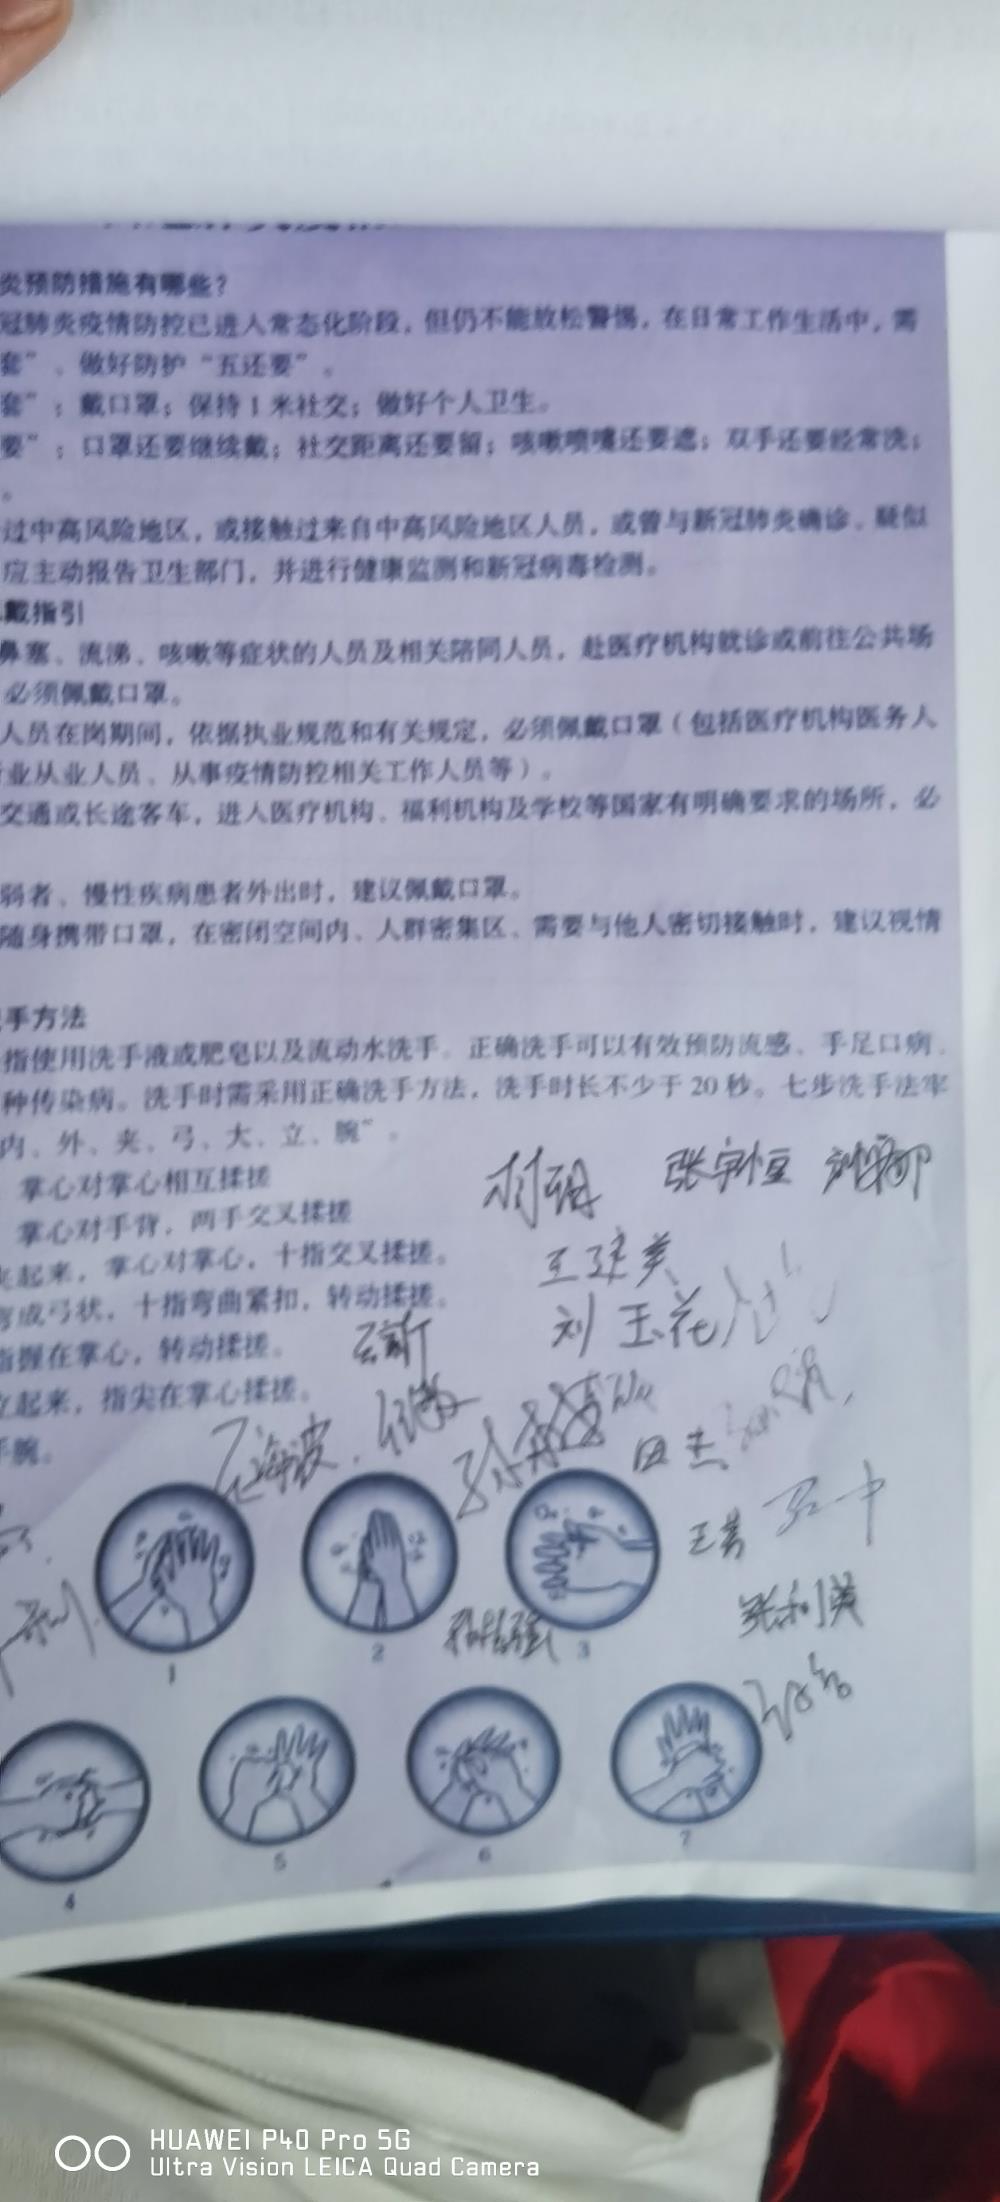 炎预防措施有哪些？
冠肺炎疫情防控已进入常态化阶段，但仍不能放松警惕，在日常工作生活中，需
套”、做好防护“五还要”。
套”：戴口罩；保持1米社交；做好个人卫生。
要”：口罩还要继续戴；社交距离还要留；咳嗽喷嚏还要遮；双手还要经常洗；
。
过中高风险地区，或接触过来自中高风险地区人员，或曾与新冠肺炎确诊、疑似
应主动报告卫生部门，并进行健康监测和新冠病毒检测。
戴指引
鼻塞、流涕、咳嗽等症状的人员及相关陪同人员，赴医疗机构就诊或前往公共场
必须佩戴口罩。
人员在岗期间，依据执业规范和有关规定，必须佩戴口罩（包括医疗机构医务人
业从业人员、从事疫情防控相关工作人员等）。
交通或长途客车，进入医疗机构、福利机构及学校等国家有明确要求的场所，必
弱者、慢性疾病患者外出时，建议佩戴口罩。
随身携带口罩，在密闭空间内、人群密集区、需要与他人密切接触时，建议视情
手方法
指使用洗手液或肥皂以及流动水洗手。正确洗手可以有效预防流感、手足口病、
种传染病。洗手时需采用正确洗手方法，洗手时长不少于20秒。七步洗手法牢
内、外、夹、弓、大、立、腕”。
掌心对掌心相互揉搓
掌心对手背，两手交叉揉搓
起来，掌心对掌心，十指交叉揉搓。
弯成弓状，十指弯曲紧扣，转动揉搓。
指握在掌心，转动揉搓。
立起来，指尖在掌心揉搓。
手腕。
张宇恒
刘玉花
石海波
田杰
王芳
张利英
1
2
3
4
5
6
7
HUAWEI P40 Pro 5G
Ultra Vision LEICA Quad Camera